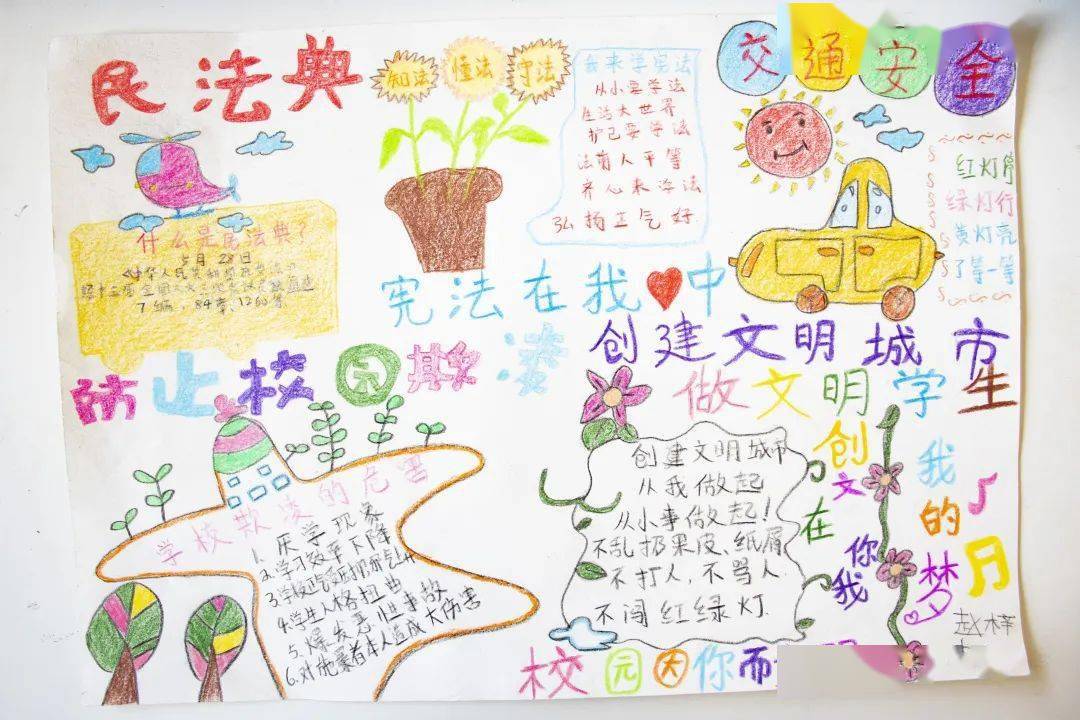 民法典
知法 懂法 守法
我来学宪法
从小要学法
生活大世界
护己要学法
法前人平等
齐心来学法
弘扬正气好
交通安全
红灯停
绿灯行
黄灯亮
了等一等
什么是民法典?
5月28日
《中华人民共和国民法典》
7编、84章、1260条
宪法在我中
防止校园欺凌
创建文明城市
做文明学生
学校欺凌的危害
1. 厌学现象
2. 学习效率下降
4. 学生人格扭曲
5. 爆发恶性事故
创建文明城市
从我做起
从小事做起!
不乱扔果皮、纸屑
不打人,不骂人.
不闯红绿灯.
创文在你我
我的梦
月
赵梓
校园因你而